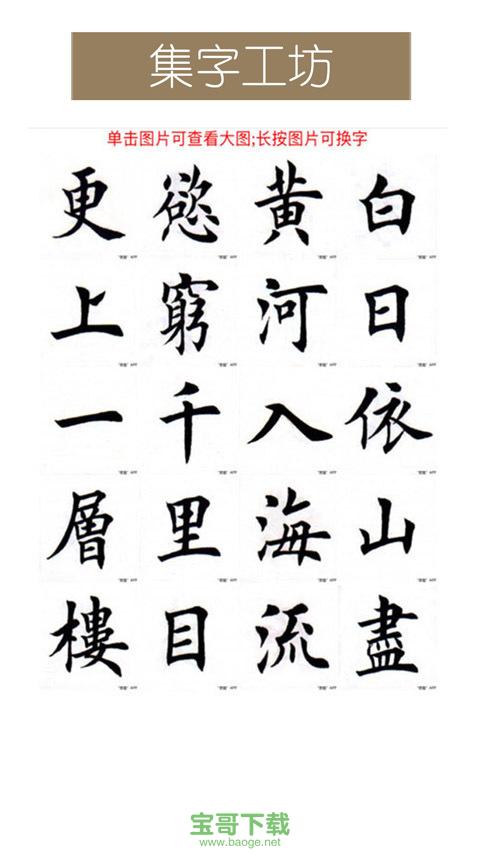 集字工坊
单击图片可查看大图;长按图片可换字
白日依山盡
黄河入海流
慾窮千里目
更上一層樓
宝哥下载
www.baoge.net